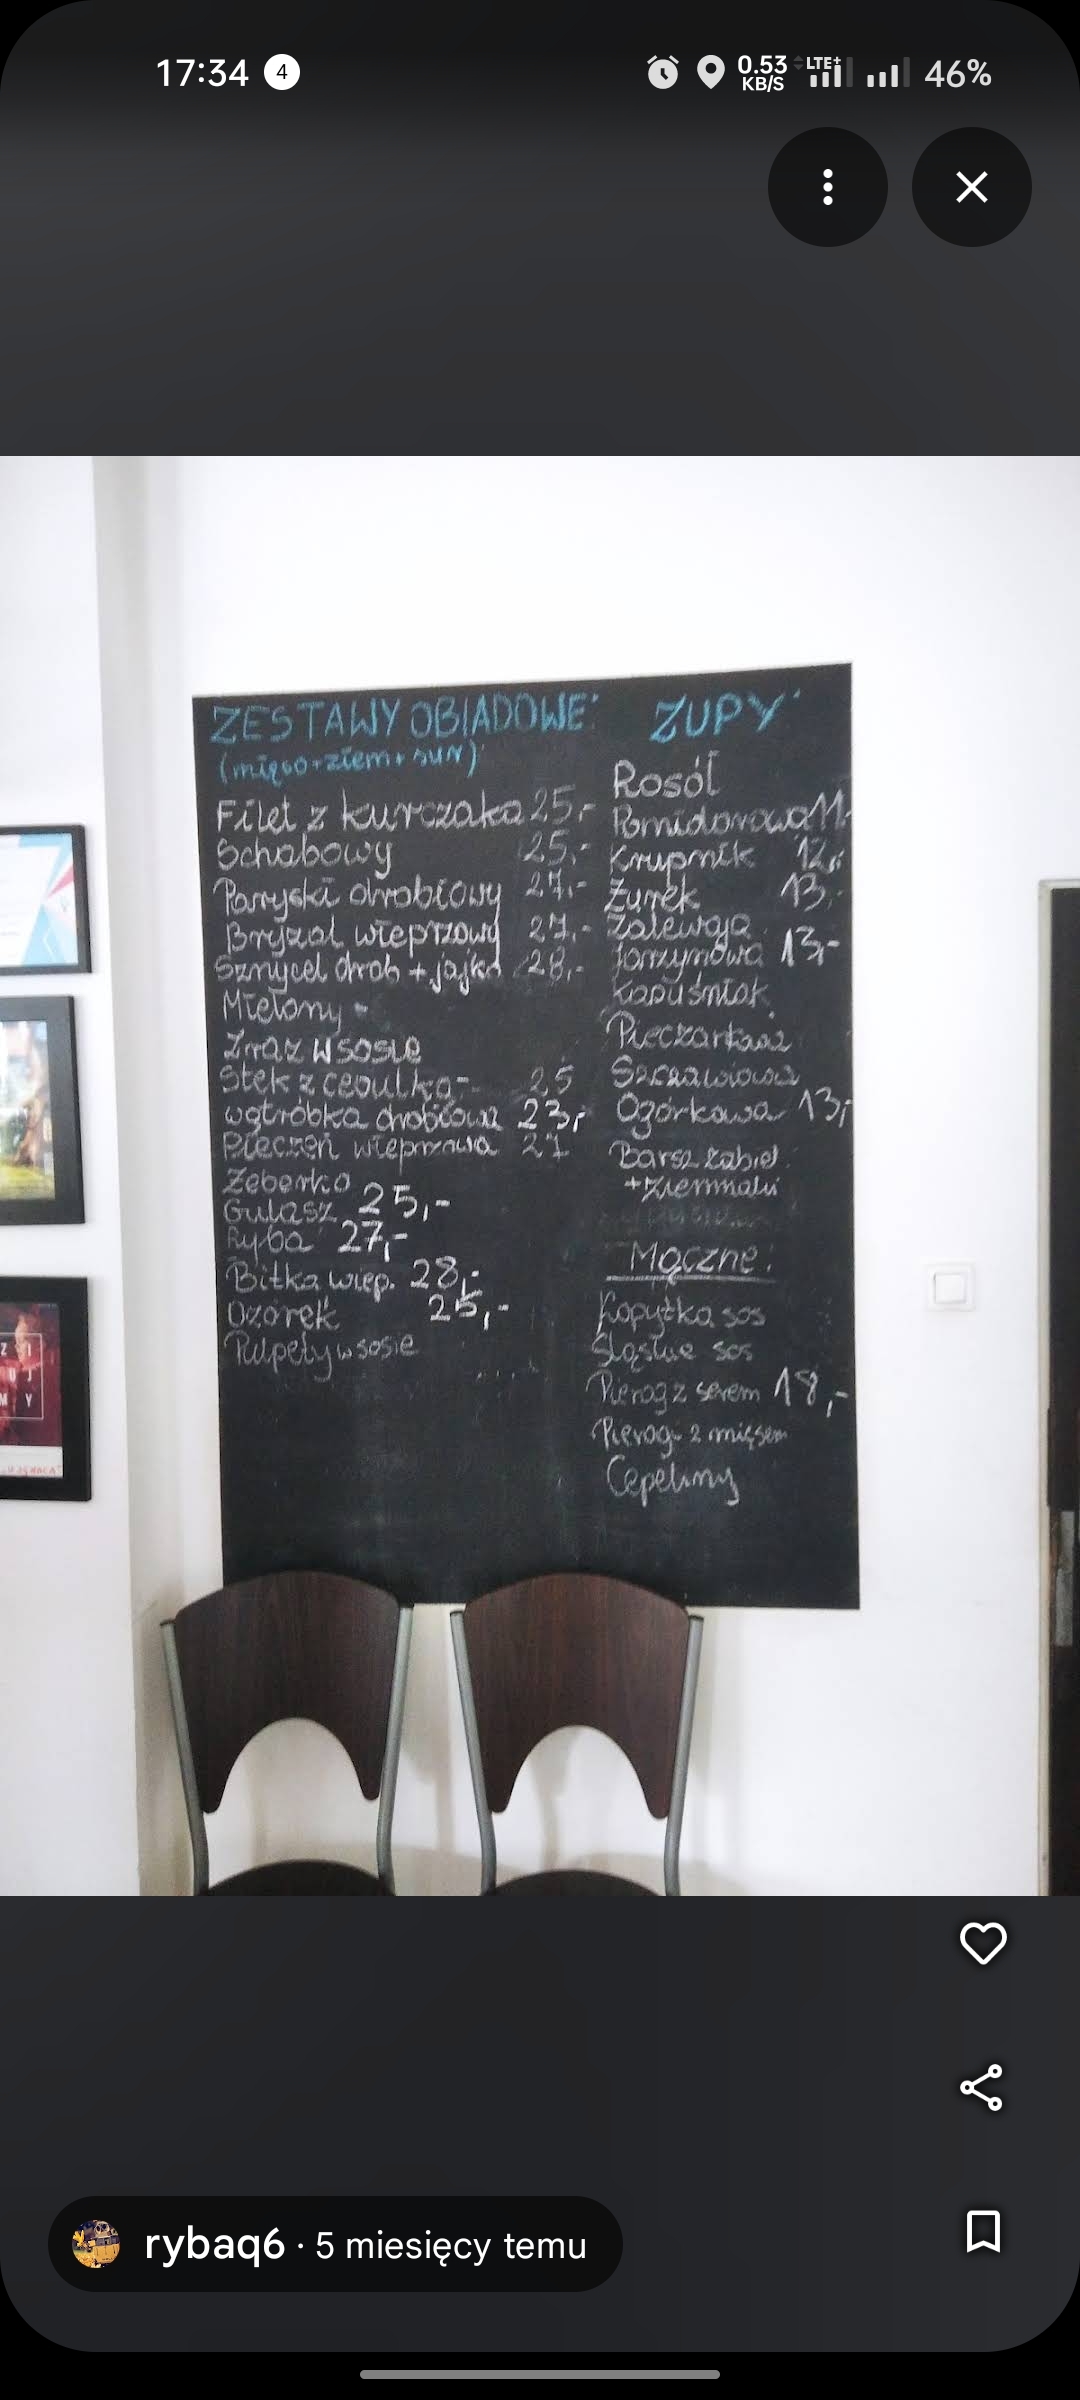 17:34 4 0.53 KB/S LTE+ 46%
ZESTAWY OBIADOWE:
(mięso+ziem+sur)
Filet z kurczaka 25,-
Schabowy 25,-
Paryski drobiowy 27,-
Bryzol wieprzowy 27,-
Sznycel drob + jajko 28,-
Mielony -
Zraz w sosie
Stek z cebulką - 25
wątróbka drobiowa 23,-
Pieczeń wieprzowa 27
Żeberko
Gulasz 25,-
Ryba 27,-
Bitka wiep. 28,-
Ozorek 25,-
Pulpety w sosie
ZUPY
Rosół
Pomidorowa 11,-
Krupnik 12,-
Żurek 13,-
Zalewaja
Jarzynowa 13,-
Kapuśniak
Pieczarkowa
Szczawiowa
Ogórkowa 13,-
Barsz zabiel.
+ziemniaki
Mączne:
Kopytka sos
Śląskie sos
Pierogi z serem 18,-
Pierogi z mięsem
Cepeliny
rybaq6 · 5 miesięcy temu